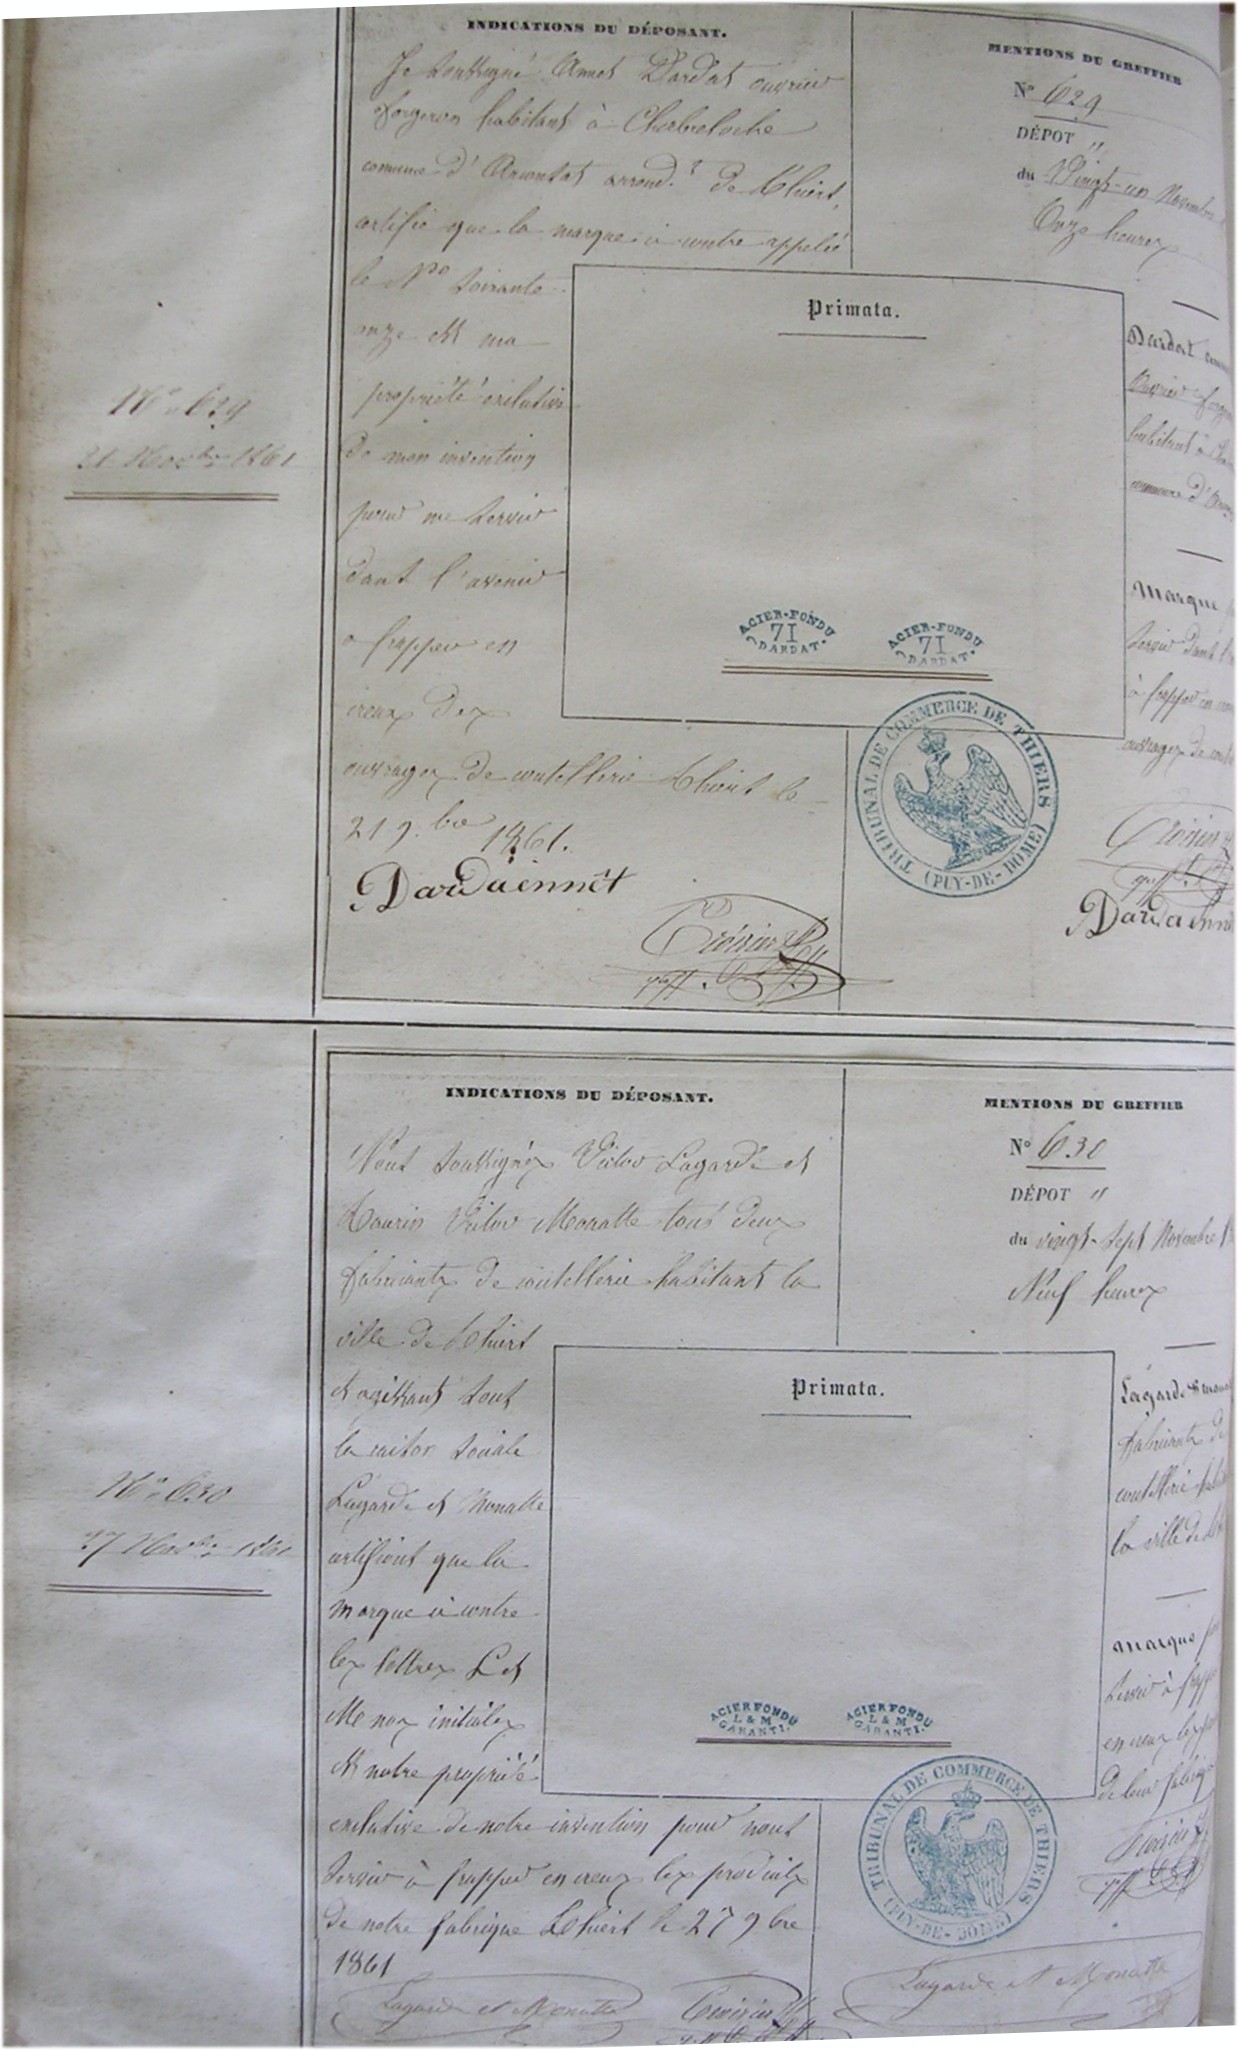 INDICATIONS DU DÉPOSANT.
Je soussigné Annet Dardat ouvrier
forgeron habitant à Chabreloche
commune d'Arconsat arrond.t de Thiers,
certifie que la marque ci contre appelée
le No soixante
onze est ma
propriété exclusive
de mon invention
pour me servir
dans l'avenir
a frapper en
creux des
ouvrages de coutellerie Thiers le
21 9.bre 1861.
Dardaennét
MENTIONS DU GREFFIER
No 629
DÉPOT "
du Vingt-un Novembre
Onze heures
Primata.
ACIER-FONDU
71
DARDAT.
ACIER-FONDU
71
DARDAT.
TRIBUNAL DE COMMERCE DE THIERS
(PUY-DE-DOME)
Dardat
Ouvrier
habitant à
commune d'
Marque
servir dans
à frapper en
ouvrages de
Dardaenn
No 629
21 Novbre 1861
INDICATIONS DU DÉPOSANT.
Nous soussignés Victor Lagarde et
Victor Monatte tous deux
fabricants de coutellerie habitant la
ville de Thiers
et agissant sous
la raison sociale
Lagarde et Monatte
certifions que la
marque ci contre
les lettres L et
M nos initiales
est notre propriété
exclusive de notre invention pour nous
servir à frapper en creux les produits
de notre fabrique Thiers le 27 9bre
1861
Lagarde et Monatte
MENTIONS DU GREFFIER
No 630
DÉPOT "
du vingt-sept Novembre
Neuf heures
Primata.
ACIER FONDU
L & M
GARANTI.
ACIER FONDU
L & M
GARANTI.
TRIBUNAL DE COMMERCE DE THIERS
(PUY-DE-DOME)
Lagarde &
fabricants de
coutellerie
la ville de
marque
servir à
en creux les
de leur
Lagarde et Monatte
No 630
27 Novbre 1861